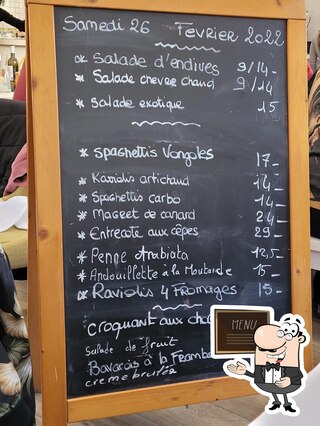 Samedi 26 Fevrier 2022
* Salade d'endives 9/14-
* Salade chevre chaud 9/14
* Salade exotique 15
* Spaghettis Vongoles 17-
* Raviolis artichaud 14-
* Spaghettis carbo 14-
* Magret de canard 24-
* Entrecote aux cêpes 29-
* Penne Arabiata 12,5-
* Andouillette à la Moutarde 15-
* Raviolis 4 Fromages 15-
Croquant aux
Salade de fruit
Bavarois à la
creme brulée
MENU